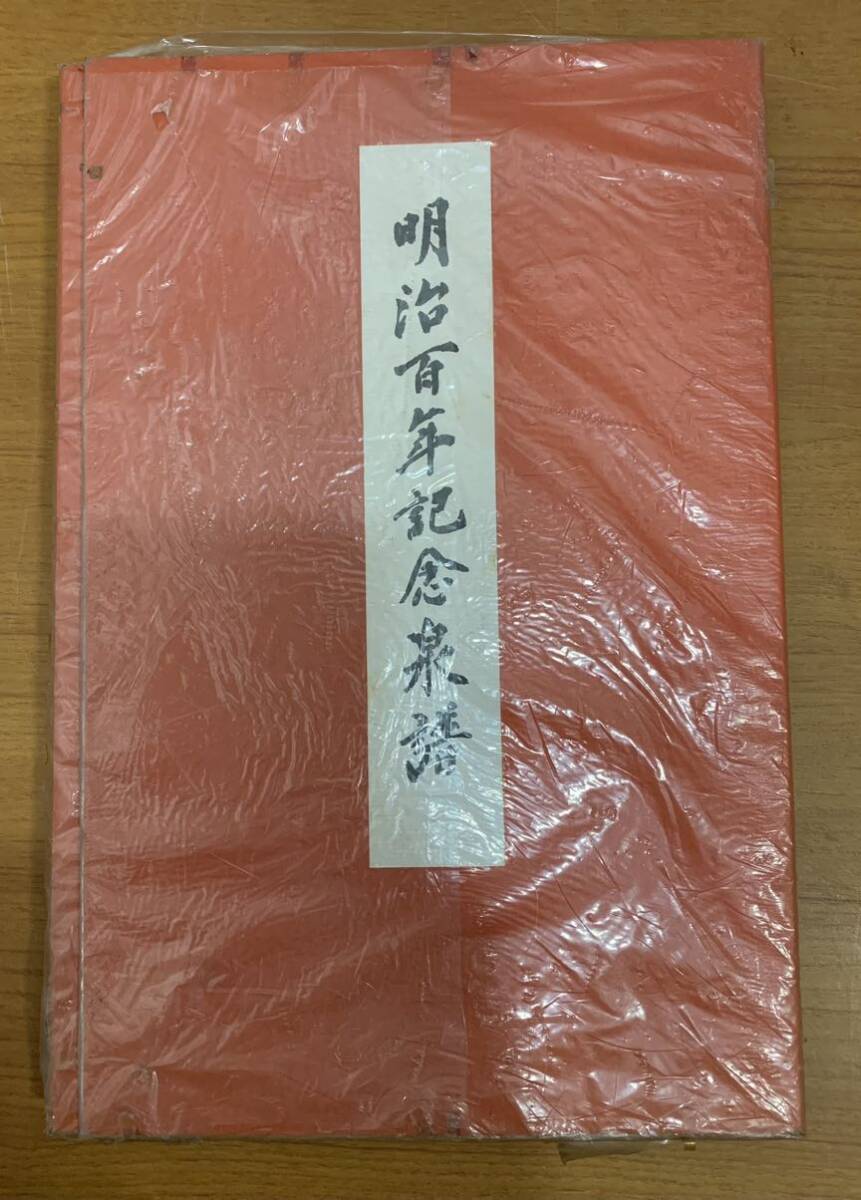 明治百年記念泉譜